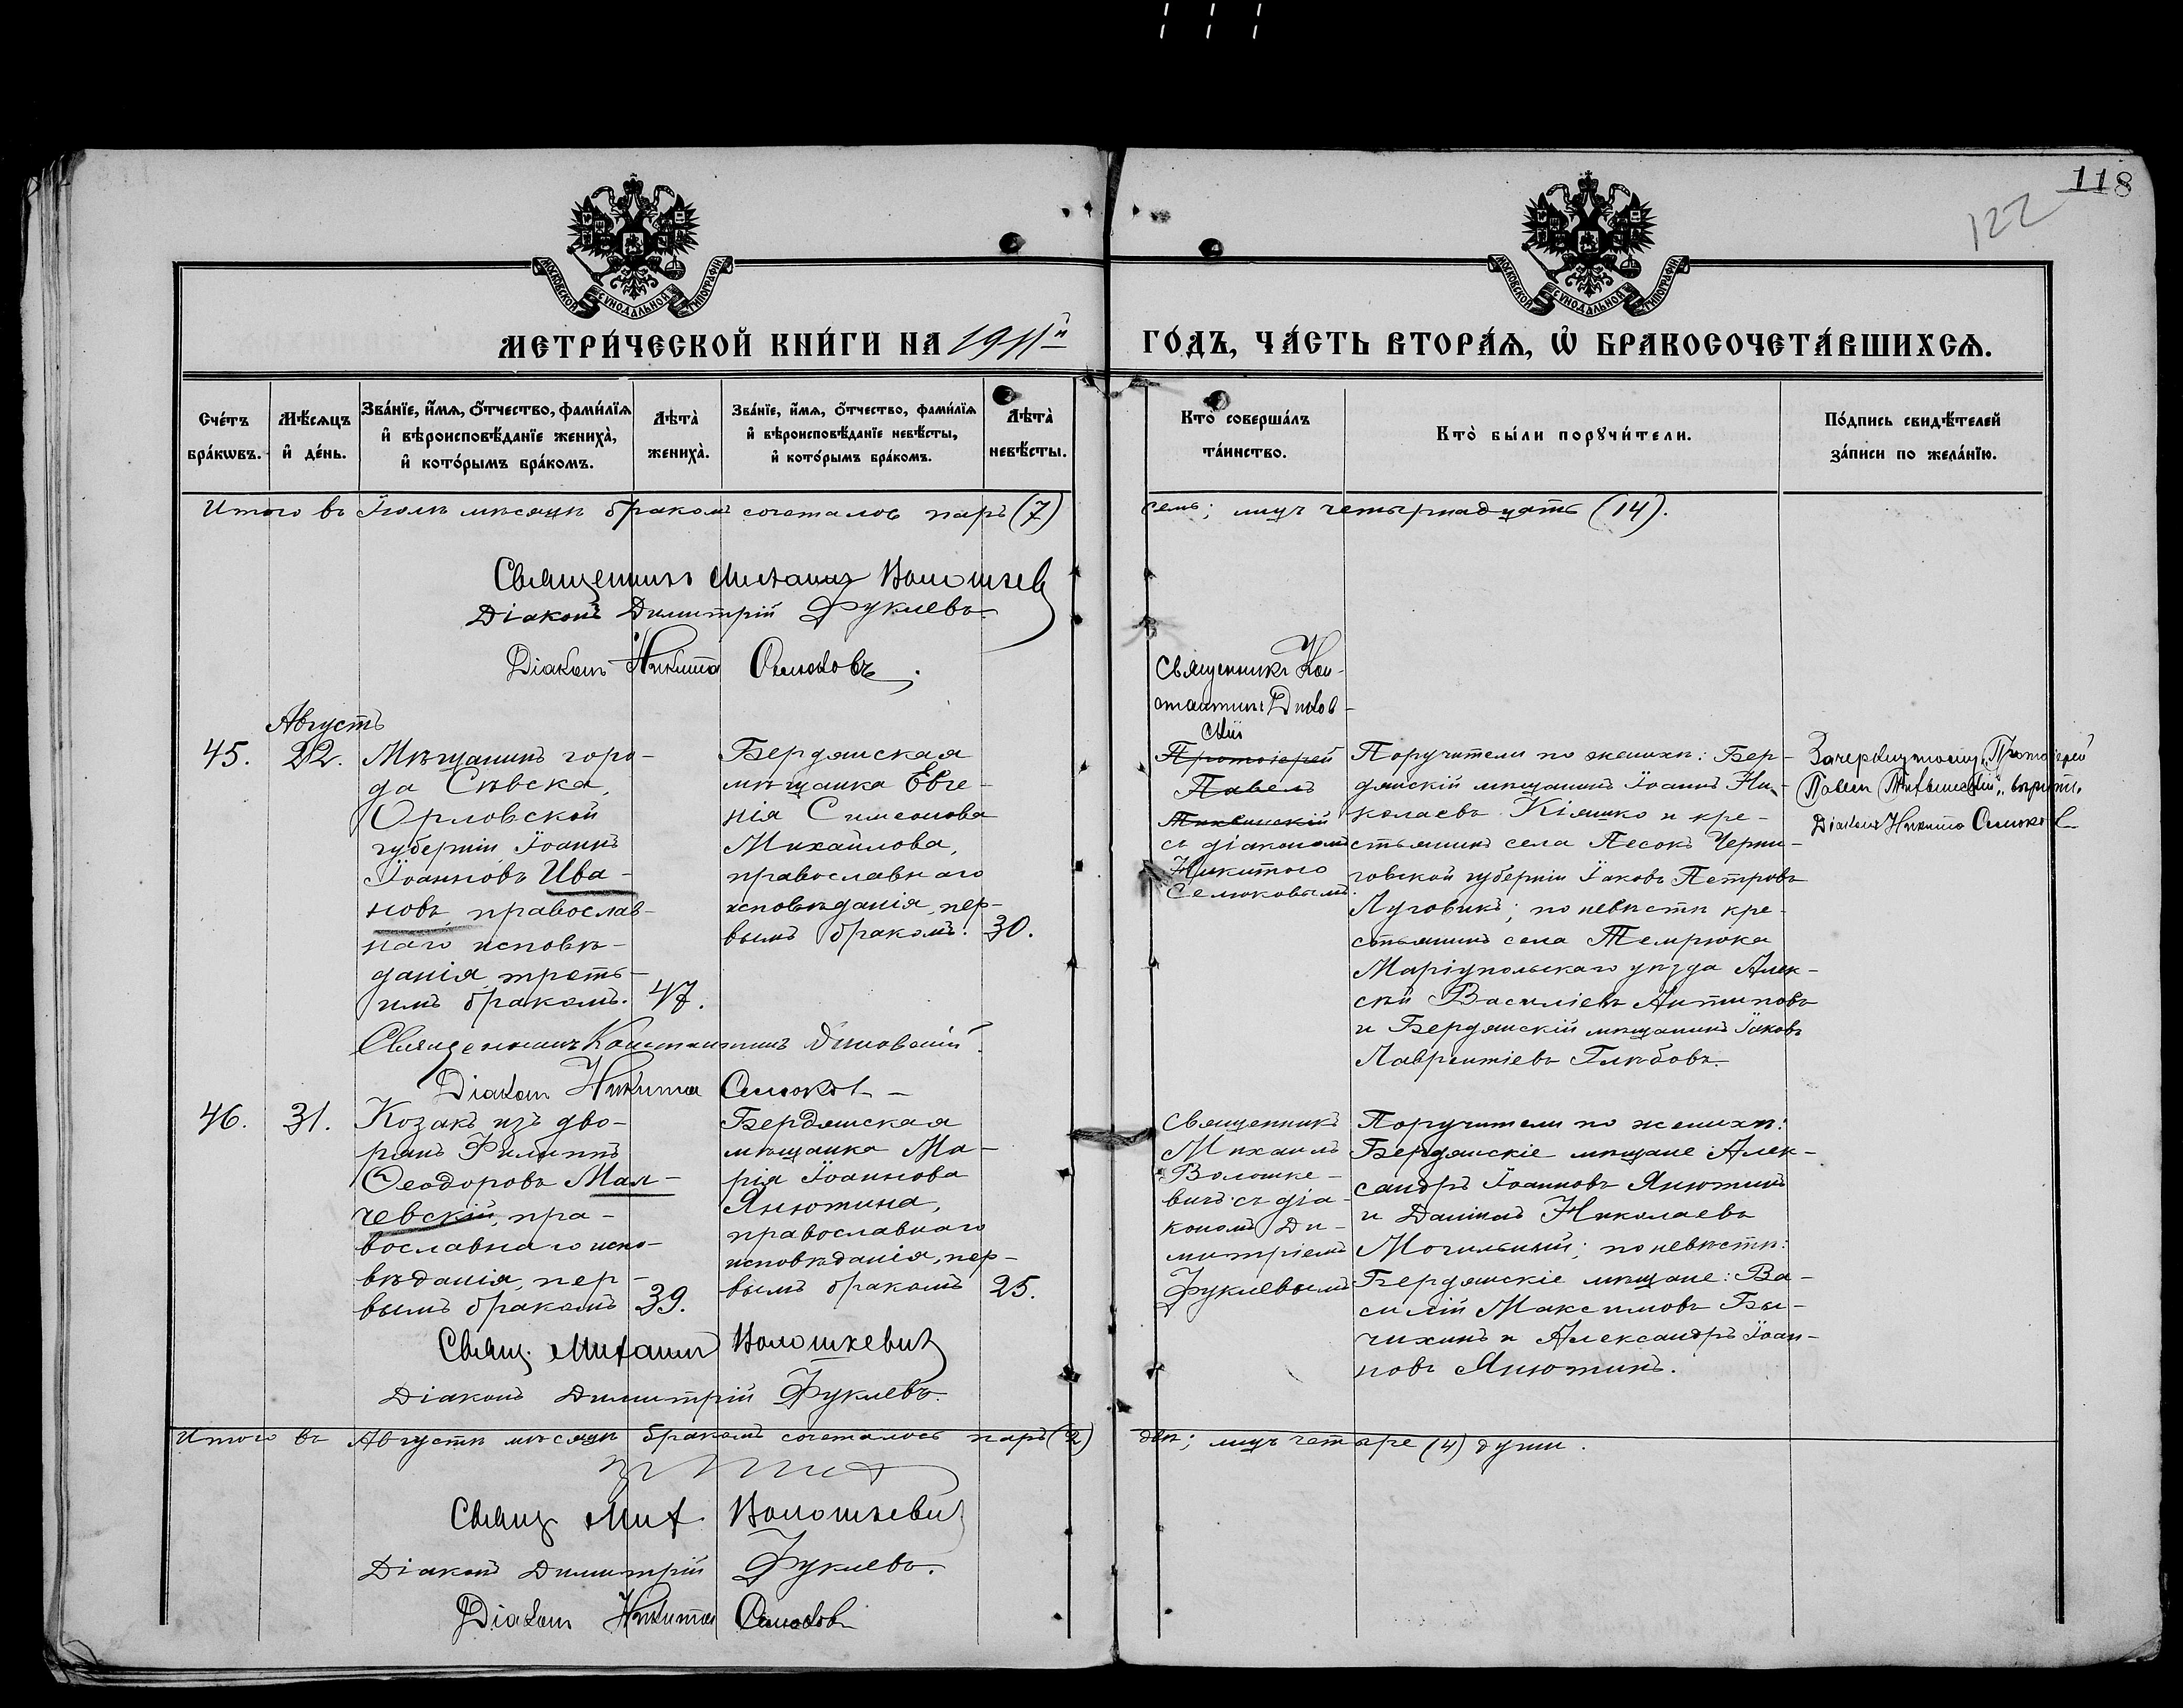 118
122
МОСКОВСКОЙ СѴНОДАЛЬНОЙ ТИПОГРАФІИ
МОСКОВСКОЙ СѴНОДАЛЬНОЙ ТИПОГРАФІИ
МЕТРИ́ЧЕСКОЙ КНИ́ГИ НА 1911й ГО́ДЪ, ЧА́СТЬ ВТОРА́Ѧ, Ѽ БРАКОСОЧЕТА́ВШИХСѦ.
Сче́тъ бра́кѡвъ.
Мѣ́сѧцъ и҆ де́нь.
Зва́нїе, и҆́мѧ, ѻ҆́тчество, фами́лїѧ
и҆ вѣроисповѣ́данїе жениха̀,
и҆ кото́рымъ бра́комъ.
Лѣта̀ жениха̀.
Зва́нїе, и҆́мѧ, ѻ҆́тчество, фами́лїѧ
и҆ вѣроисповѣ́данїе невѣ́сты,
и҆ кото́рымъ бра́комъ.
Лѣта̀ невѣ́сты.
Кто̀ соверша́лъ та́инство.
Кто̀ бы́ли порꙋчи́тели.
По́дпись свидѣ́телей
за́писи по жела́нїю.
Итого въ Іюлѣ мѣсяцѣ бракомъ сочеталось паръ (7) семь; лицъ четырнадцать (14).
Священникъ Михаилъ Волошкев
Діаконъ Димитрій Фуклевъ
Діаконъ Никита Семоковъ
Августъ
45.
22.
Мѣщанинъ горо-
да Сѣвска,
Орловской
губерніи Іоаннъ
Іоанновъ Ива-
новъ, православ-
наго исповѣ-
данія, треть-
имъ бракомъ.
47.
Бердянская
мѣщанка Евге-
нія Симеонова
Михайлова,
православнаго
исповѣданія, пер-
вымъ бракомъ.
30.
Священникъ Кон-
стантинъ Диков-
скій
Протоіерей
Павелъ
Тихвинскій
съ діакономъ
Никитою
Семоковымъ
Поручители по женихѣ: Бер-
дянскій мѣщанинъ Іоаннъ Ни-
колаевъ Кіяшко и кре-
стьянинъ села Песокъ Черни-
говской губерніи Іаковъ Петровъ
Луговикъ; по невѣстѣ кре-
стьянинъ села Темрюка
Маріупольскаго уѣзда Алек-
сѣй Василіевъ Антиповъ
и Бердянскій мѣщанинъ Іаковъ
Лаврентіевъ Глѣбовъ.
Зачеркнутому „Протоіерей
Павелъ Тихвинскій“ вѣрить.
Діаконъ Никита Семоковъ
Священникъ Константинъ Диковскій.
Діаконъ Никита Семоковъ
46.
31.
Козакъ изъ дво-
рянъ Филиппъ
Ѳеодоровъ Мал-
чевскій, пра-
вославнаго испо-
вѣданія, пер-
вымъ бракомъ
39.
Бердянская
мѣщанка Ма-
рія Іоаннова
Янютина,
православнаго
исповѣданія, пер-
вымъ бракомъ
25.
Священникъ
Михаилъ
Волошке-
вичъ съ діа-
кономъ Ди-
митріемъ
Фуклевымъ
Поручители по женихѣ:
Бердянскіе мѣщане Алек-
сандръ Іоанновъ Янютинъ
и Даніилъ Николаевъ
Могильный; по невѣстѣ:
Бердянскіе мѣщане: Ва-
силій Максимовъ Бы-
чихинъ и Александръ Іоан-
новъ Янютинъ.
Свящ. Михаилъ Волошкевичъ
Діаконъ Димитрій Фуклевъ.
Итого въ Августѣ мѣсяцѣ бракомъ сочеталось паръ (2) двѣ; лицъ четыре (4) души.
Свящ Мих Волошкевич
Діаконъ Димитрій Фуклевъ.
Діаконъ Никита Семоковъ